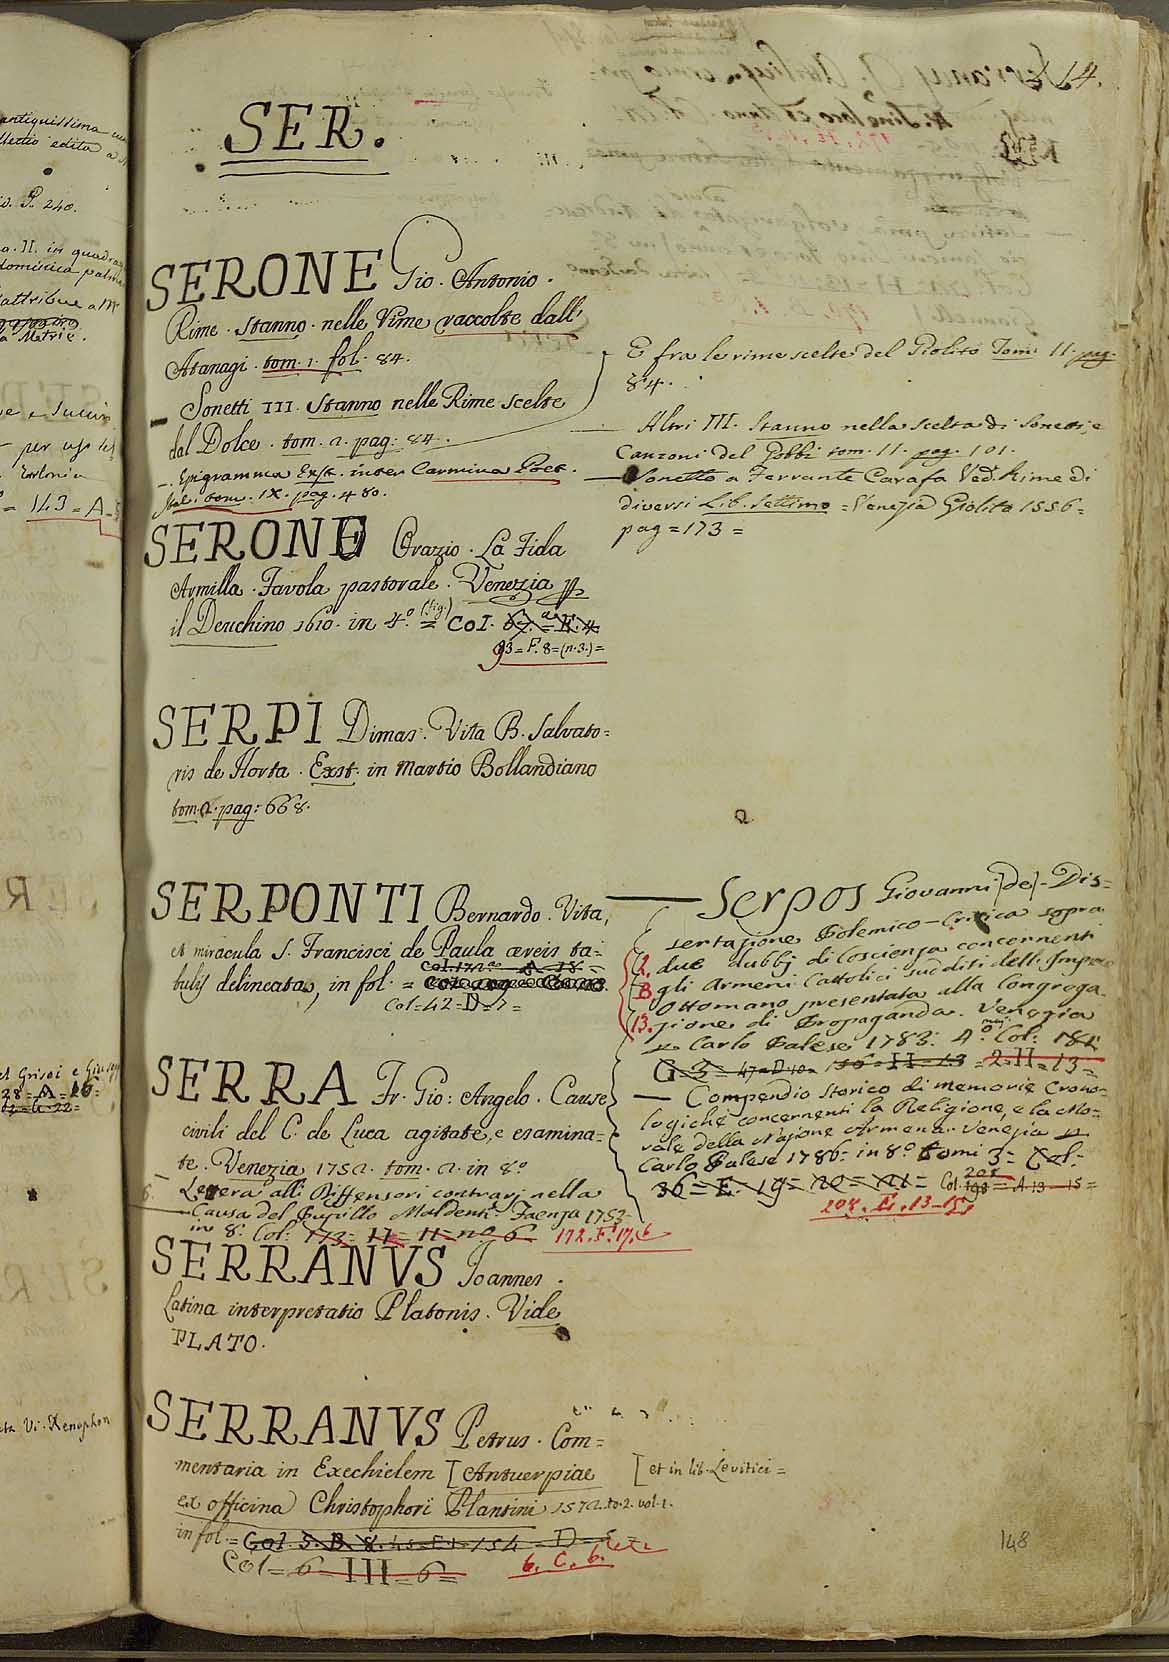 SER.
14.
SERONE Gio. Antonio.
Rime. Stanno nelle Rime raccolte dall'
Atanagi. tom. 1. fol. 84.
— Sonetti III. Stanno nelle Rime scelte
dal Dolce. tom. 2. pag: 84.
— Epigramma Exst. inter Carmina Poet.
Ital. tom. IX. pag. 480.
E fra le rime scelte del Giolito Tom. II. pag.
84.
— Altri III. Stanno nella scelta di Sonetti, e
Canzoni del Gobbi tom. II. pag. 101.
— Sonetto a Ferrante Carafa Ved. Rime di
diversi Lib. Settimo = Venezia Giolito 1556 =
pag = 173 =
SERONE Orazio. La Fida
Armilla. Favola pastorale. Venezia pp
il Deuchino 1610. in 4.º = Col.
93 = F. 8 = (n. 3.) =
SERPI Dimas. Vita B. Salvato=
ris de Horta. Exst. in Martio Bollandiano
tom. 2. pag: 668.
SERPONTI Bernardo. Vita,
et miracula S. Francisci de Paula æreis ta=
bulis delineata, in fol. =
Col = 42 = D = 7 =
— Serpos Giovanni (de) - Dis=
sertazione Polemico-Critica sopra
due dubbj di Coscienza concernenti
gli Armeni Cattolici sudditi dell'Impero
Ottomano presentata alla Congrega
zione di Propaganda. Venezia
Carlo Palese 1783: 4.º Col:
G 3 = 47 = D 10 = 36 = II = 13 = 2 = II = 13 =
— Compendio Storico di memorie Crono=
logiche concernenti la Religione, e la Mo=
rale della Nazione Armena. Venezia
Carlo Palese 1786: in 8º Tomi 3 = Col:
36 = E. 19 = 20 = 21 = Col. 198 = A 13 - 15 =
208. A. 13-15
SERRA Fr. Gio: Angelo. Cause
civili del C. de Luca agitate, e esamina=
te. Venezia 1752. tom. 2. in 8º
— Lettera alli Diffensori contrarj nella
Causa del Pupillo Maldenti. Faenza 1753
in 8º Col: 173 = II = 11 = nº 6 = 172. F. 17. 6
SERRANVS Joannes.
Latina interpretatio Platonis. Vide
PLATO.
SERRANVS Petrus. Com=
mentaria in Ezechielem [ Antuerpiae
[ et in lib. Levitici =
ex officina Christophori Plantini 1572. to. 2. vol. 1.
in fol. = Col. 5. B. 8.
Col = 6 = III = 6 =
6. C. 6.
148